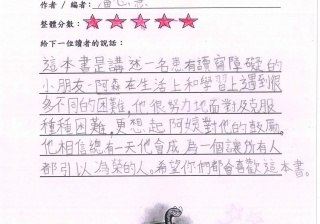 作者 / 編者：
整體分數：
給下一位讀者的說話：
這本書是講述一名患有讀寫障礙的
小朋友-阿森在生活上和學習上遇到很
多不同的困難，他很努力地面對及克服
種種困難，更想起阿嬤對他的鼓勵。
他相信總有一天他會成為一個讓所有人
都引以為榮的人。希望你們都會喜歡這本書。